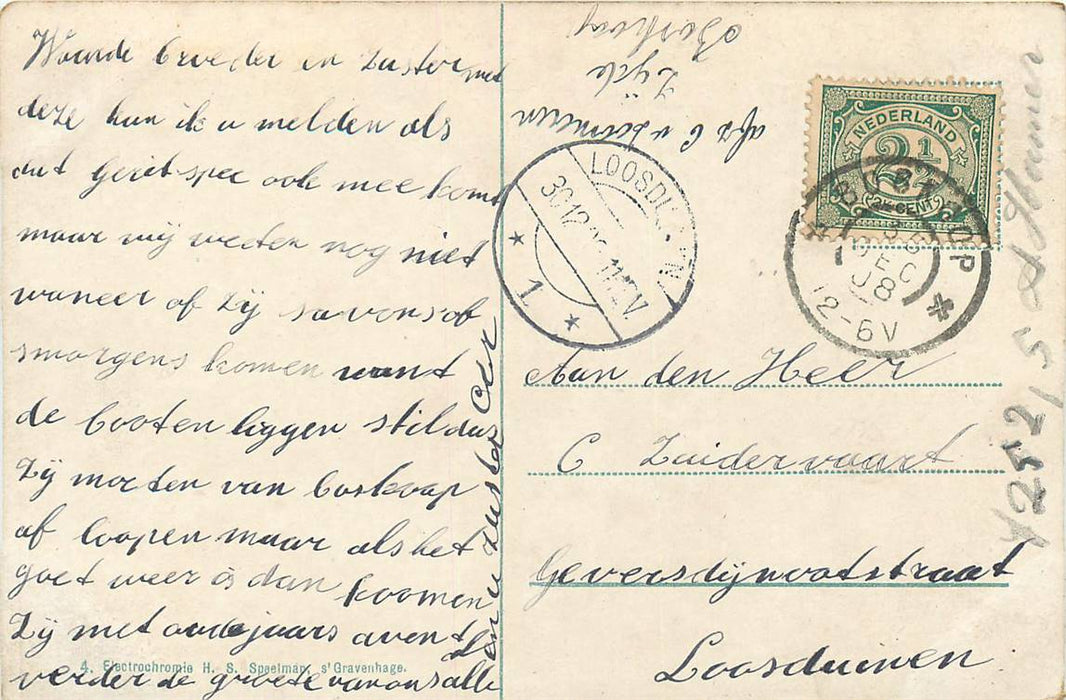 Waarde broeder en zuster met
deze kan ik u melden als
dat Gerit spee ook mee komt
maar wij weeten nog niet
waneer of zij savons of
smorgens komen want
de booten liggen stil dus
Zij moeten van boskoop
af loopen maar als het
goet weer is dan koomen
Zij met oudejaars avent
verder de groete van ons alle
en u zuster
4. Electrochromie H. S. Speelman, s'Gravenhage.
afz C v
Zijde
LOOSDUINEN
30.12
1
NEDERLAND
2½
CENT
BOSKOOP
DEC
08
12-6V
Aan den Heer
C Zuidervaart
Geversdijnootstraat
Loosduinen